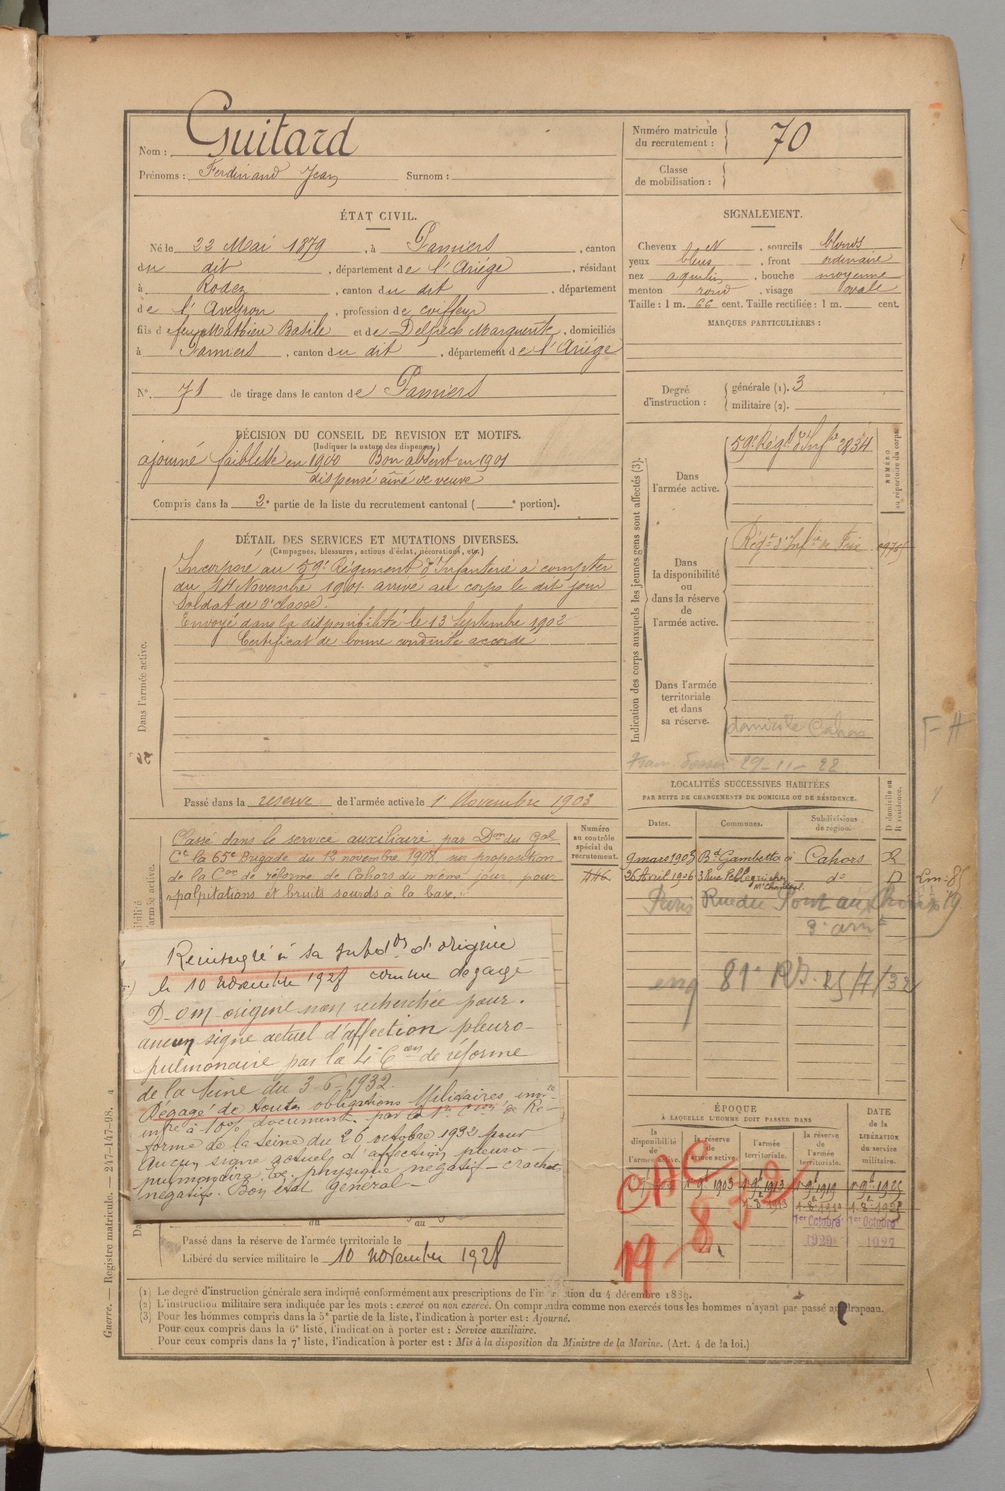 Nom : Guitard
Prénoms : Ferdinand Jean Surnom :
Numéro matricule du recrutement : 70
Classe de mobilisation :
ÉTAT CIVIL.
Né le 22 Mai 1879, à Pamiers, canton
du dit, département de l'Ariége, résidant
à Rodez, canton du dit, département
de l'Aveyron, profession de coiffeur
fils d feu Mathieu Basile et de Delpech Marguerite, domiciliés
à Pamiers, canton du dit, département de l'Ariége
N° 71 de tirage dans le canton de Pamiers
SIGNALEMENT.
Cheveux et, sourcils blonds
yeux bleus, front ordinaire
nez aquilin, bouche moyenne
menton rond, visage ovale
Taille : 1 m. 66 cent. Taille rectifiée : 1 m. cent.
MARQUES PARTICULIÈRES :
Degré d'instruction : générale (1). 3
militaire (2).
DÉCISION DU CONSEIL DE REVISION ET MOTIFS.
(Indiquer la nature des dispenses)
ajourné faiblesse en 1900 Bon absent en 1901
dispensé aîné de veuve
Compris dans la 2e partie de la liste du recrutement cantonal ( e portion).
DÉTAIL DES SERVICES ET MUTATIONS DIVERSES.
(Campagnes, blessures, actions d'éclat, décorations, etc.)
Dans l'armée active.
Incorporé au 59e Régiment d'Infanterie à compter
du 14 Novembre 1901 arrivé au corps le dit jour
Soldat de 2e classe.
Envoyé dans la disponibilité le 13 Septembre 1902
Certificat de bonne conduite accordé
Passé dans la réserve de l'armée active le 1 Novembre 1903
Indication des corps auxquels les jeunes gens sont affectés (3).
NUMÉRO au répertoire du corps.
Dans l'armée active.
59e Régt d'Infie 2834
Dans la disponibilité ou dans la réserve de l'armée active.
Régt d'Infie de Foix
Dans l'armée territoriale et dans sa réserve.
domicile Cahors
29-11-22
F-H
Classé dans le service auxiliaire par Don du Gal
Ct la 65e Brigade du 12 novembre 1908, sur proposition
de la Con de réforme de Cahors du même jour pour
palpitations et bruits sourds à la base.
Numéro au contrôle spécial du recrutement.
LOCALITÉS SUCCESSIVES HABITÉES
PAR SUITE DE CHANGEMENTS DE DOMICILE OU DE RÉSIDENCE.
Dates. Communes. Subdivisions de région. D domicile ou R résidence.
9 mars 1903 Bd Gambetta à Cahors R
25 Avril 1906 do D
Paris Rue du Pont aux Choux 19
3e arrt
81e RI. 25/7/32
Réintégré à sa subdon d'origine
le 10 novembre 1928 comme dégagé
D-om-origine non recherchée pour.
aucun signe actuel d'affection pleuro-
pulmonaire par la 4e Con de réforme
de la Seine du 3-6-1932.
Dégagé de toutes obligations Militaires,
Réforme de la Seine du 26 octobre 1932 pour
Aucun signe actuel d'affection pleuro-
pulmonaire. Ex. physique négatif - crachats
négatifs. Bon état général -
ÉPOQUE
À LAQUELLE L'HOMME DOIT PASSER DANS
DATE de la LIBÉRATION du service militaire.
la disponibilité de l'armée active. la réserve de l'armée active. l'armée territoriale. la réserve de l'armée territoriale.
1er Octobre 1er Octobre
1920 1927
CAC
19-832
Passé dans la réserve de l'armée territoriale le
Libéré du service militaire le 10 novembre 1928
(1) Le degré d'instruction générale sera indiqué conformément aux prescriptions de l'instruction du 4 décembre 1889.
(2) L'instruction militaire sera indiquée par les mots : exercé ou non exercé. On comprendra comme non exercés tous les hommes n'ayant pas passé au drapeau.
(3) Pour les hommes compris dans la 5e partie de la liste, l'indication à porter est : Ajourné.
Pour ceux compris dans la 6e liste, l'indication à porter est : Service auxiliaire.
Pour ceux compris dans la 7e liste, l'indication à porter est : Mis à la disposition du Ministre de la Marine. (Art. 4 de la loi.)
Guerre. — Registre matricule. — 247-147-98.